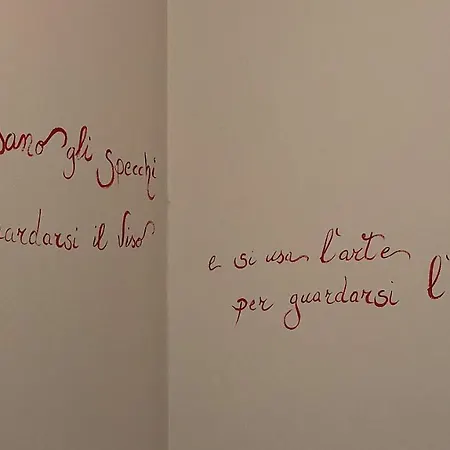 sano gli Specchi
uardarsi il Viso
e si usa l'arte
per guardarsi l'